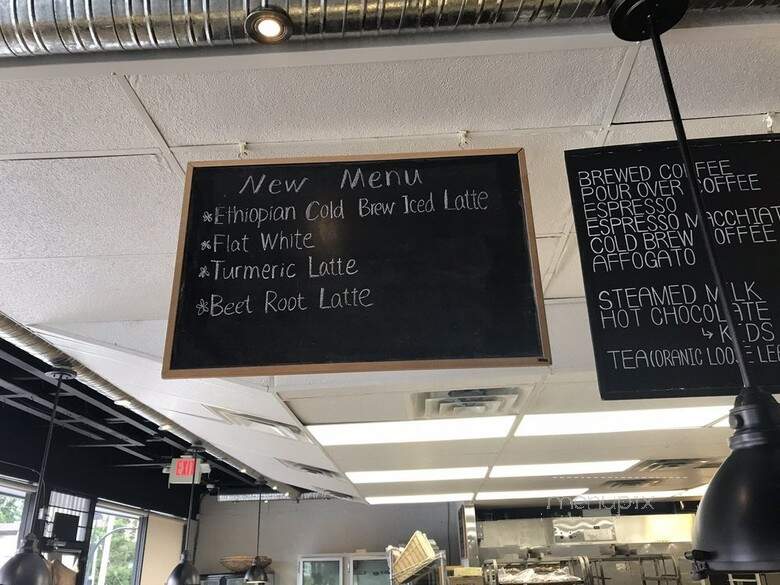 New Menu
*Ethiopian Cold Brew Iced Latte
*Flat White
*Turmeric Latte
*Beet Root Latte
BREWED COFFEE
POUR OVER COFFEE
ESPRESSO
ESPRESSO MACCHIAT
COLD BREW COFFEE
AFFOGATO
STEAMED MILK
HOT CHOCOLATE
↳ KIDS
TEA(ORANIC LOOSE LEA
EXIT
menupix